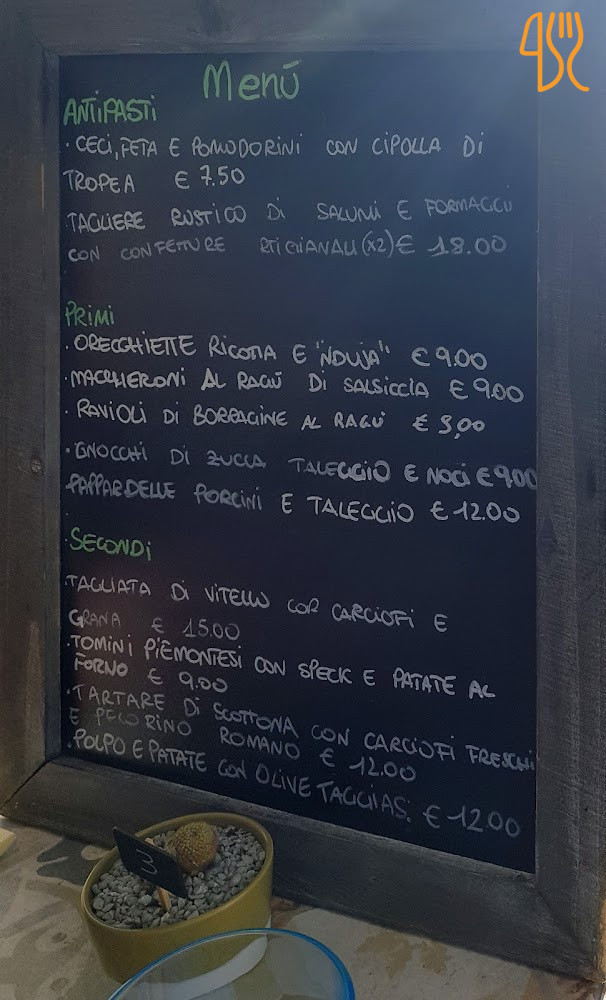 Menú
ANTIPASTI
· CECI, FETA E POMODORINI CON CIPOLLA DI
TROPEA € 7.50
TAGLIERE RUSTICO DI SALUMI E FORMAGGI
CON CONFETTURE RTIGIANALI (x2) € 18.00
PRIMI
· ORECCHIETTE RICOTTA E "NDUJA" € 9.00
· MACCHERONI AL RAGÚ DI SALSICCIA € 9.00
· RAVIOLI DI BORRAGINE AL RAGÚ € 9,00
· GNOCCHI DI ZUCCA TALEGGIO E NOCI € 9.00
PAPPARDELLE PORCINI E TALEGGIO € 12.00
· SECONDI
· TAGLIATA DI VITELLO COP CARCIOFI E
GRANA € 15.00
· TOMINI PIEMONTESI CON SPECK E PATATE AL
FORNO € 9.00
· TARTARE DI SCOTTONA CON CARCIOFI FRESCHI
E PECORINO ROMANO € 12.00
· POLPO E PATATE CON OLIVE TAGGIAS. € 12.00
3